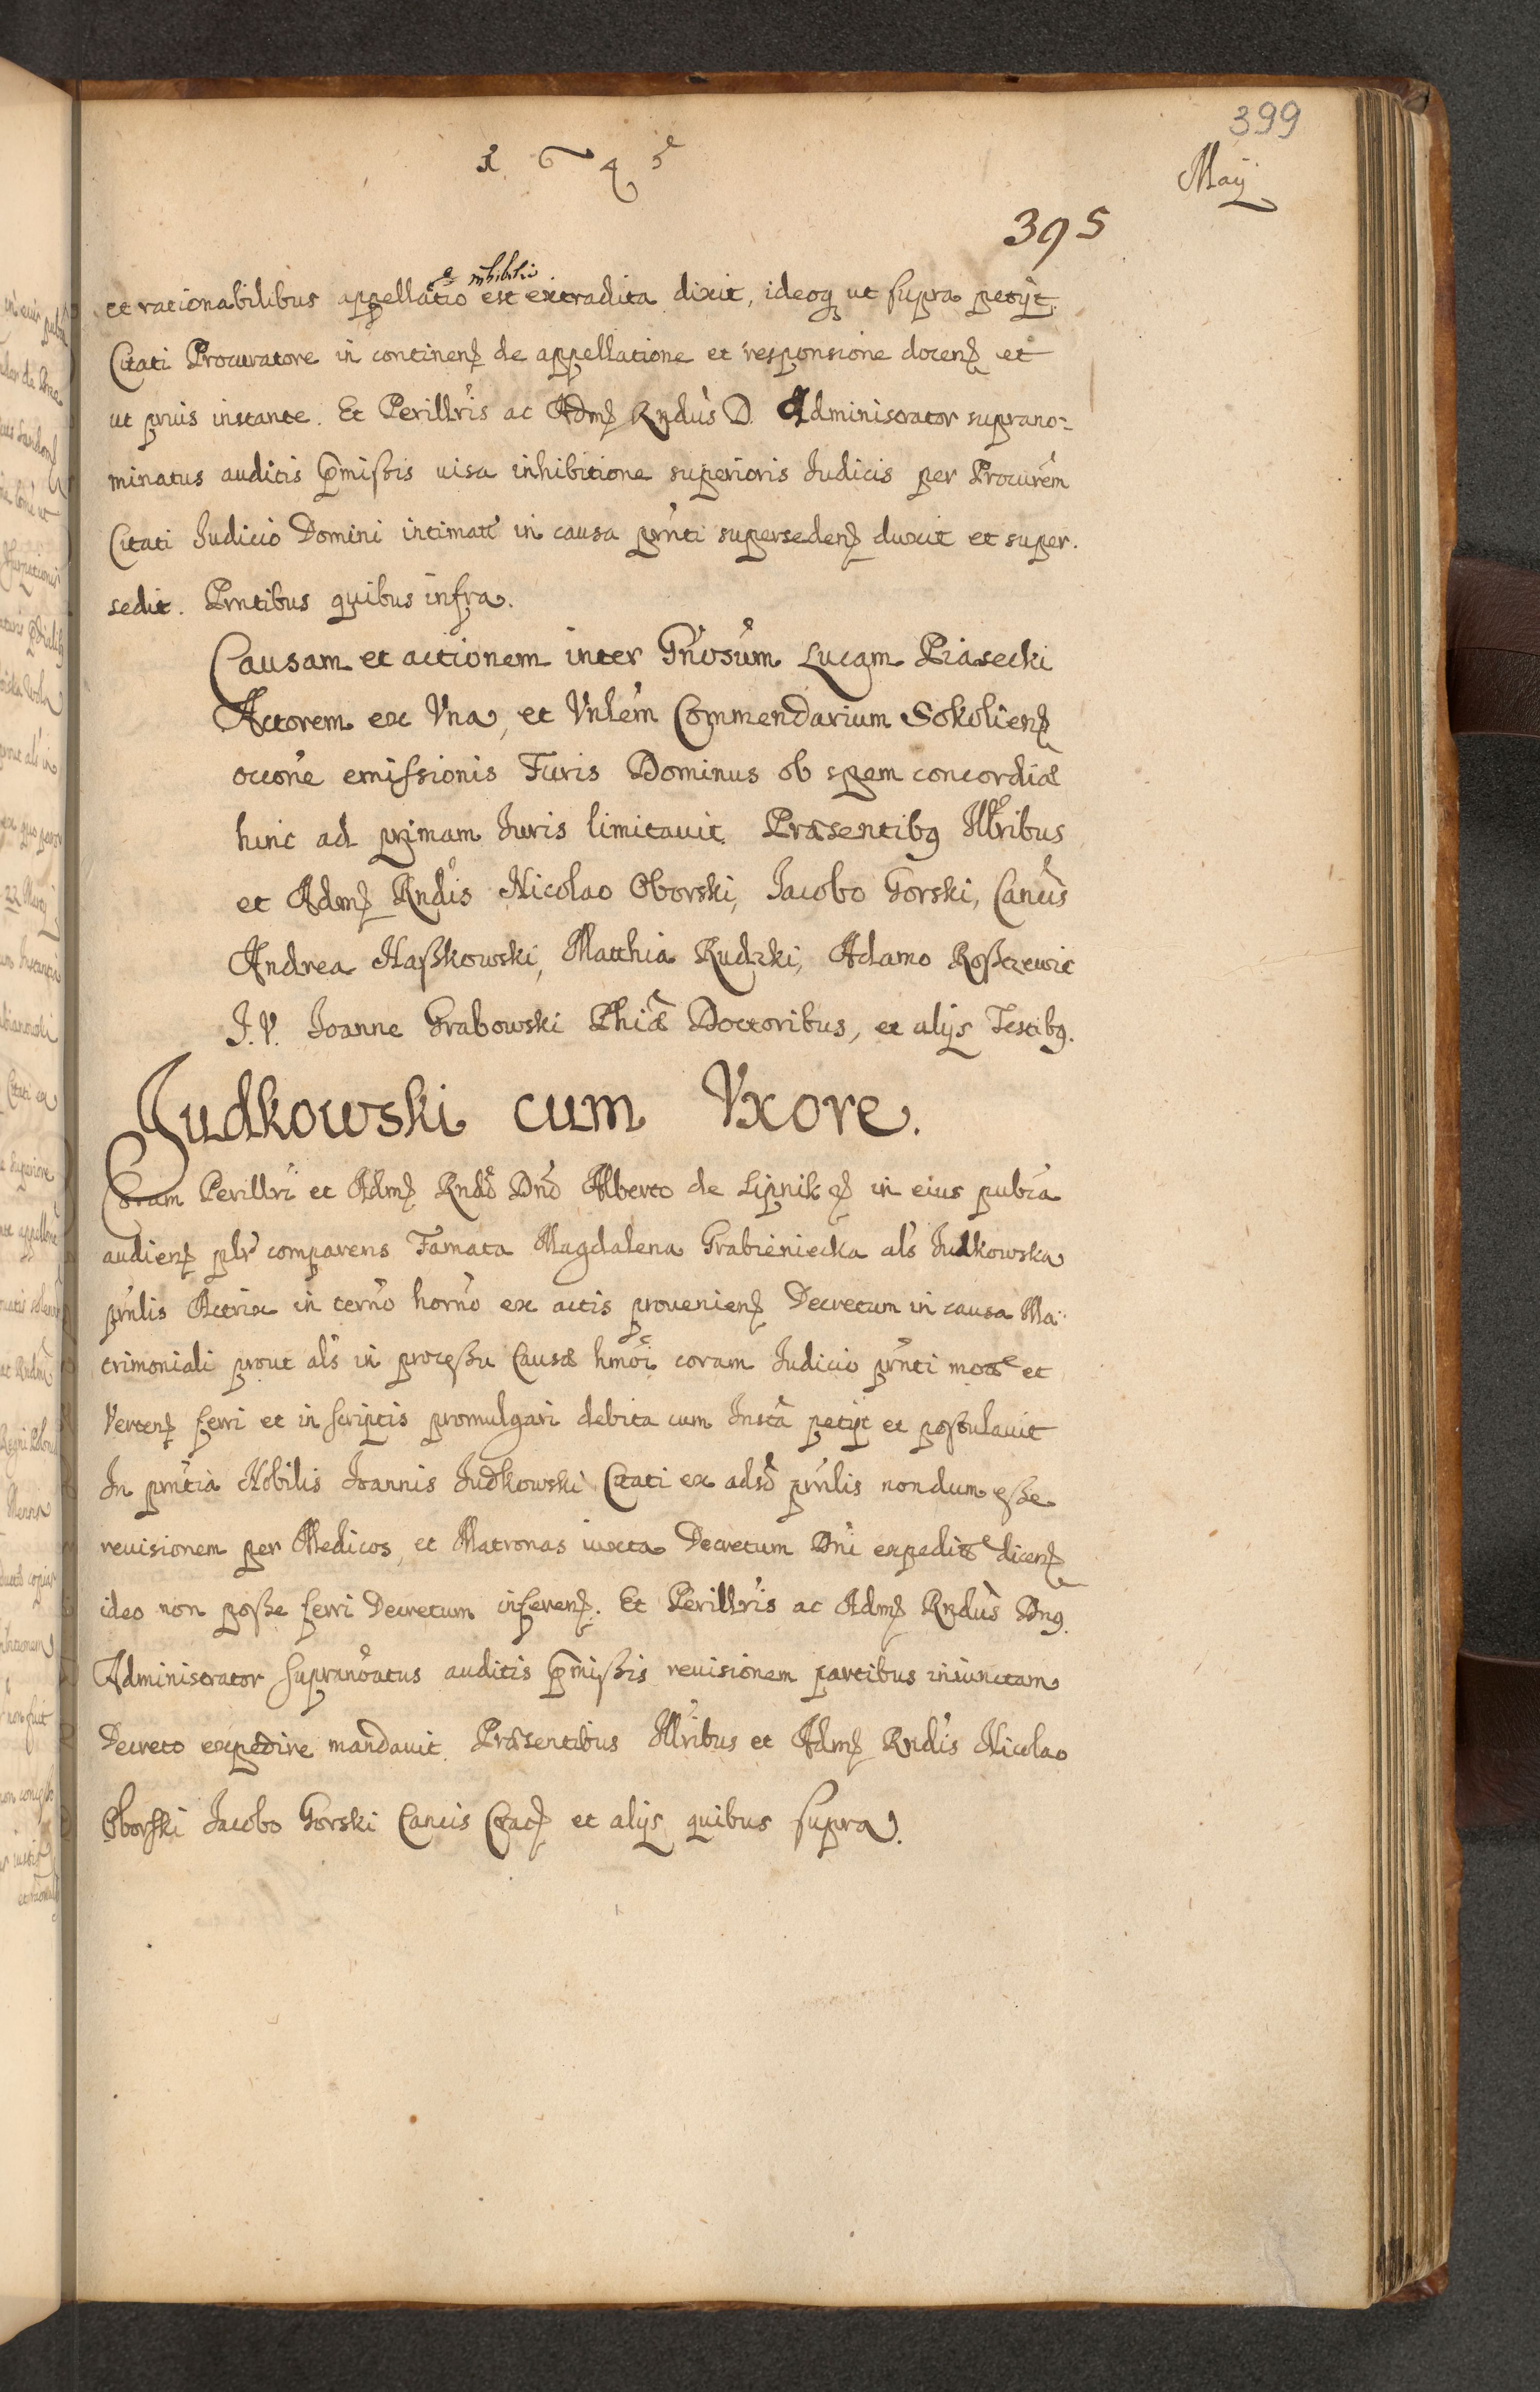 399
1645
Maij
395
et inhibitio
et rationabilibus appellatio est extradita dixit, ideoq ut supra petijt.
Citati Procuratore in continen de appellatione et responsione docen et
ut prius instante. Et Perillris ac Adm Rndus D. Administrator suprano=
minatus auditis pmissis uisa inhibitione superioris Iudicis per Procurem
Citati Iudicio Domini intimata in causa prnti superseden duxit et super.
sedit. Prntibus quibus infra.
Causam et actionem inter Gnosum Lucam Piasecki
Actorem ex Vna, et Vnlem Commendarium Sokolien
occone emissionis Furis Dominus ob spem concordiæ
hinc ad primam Iuris limitauit. Præsentibq Illribus
et Adm Rndis Nicolao Oborski, Iacobo Gorski, Cancis
Andrea Haßkowski, Matthia Rudzki, Adamo Roßczewic
I.V. Ioanne Grabowski Phiæ Doctoribus, et alijs Testibq.
Iudkowski cum Vxore.
Coram Perillri et Adm Rndo Dno Alberto de Lipnik in eius publca
audien plr comparens Famata Magdalena Grabieniecka als Iudkowska
prnlis Actrix in terno horno ex actis prouenien Decretum in causa Ma=
trimoniali prout als in processu Causæ hmoi coram Iudicio prnti motæ et
Verten ferri et in scriptis promulgari debita cum Insta petijt et postulauit
In prntia Nobilis Ioannis Iudkowski Citati ex adso prnlis nondum esse
reuisionem per Medicos, et Matronas iuxta Decretum Dni expeditæ dicen
ideo non posse ferri Decretum inferen. Et Perillris ac Adm Rndus Dnq.
Administrator supranoatus auditis pmissis reuisionem partibus iniunctam
Decreto expedire mandauit. Præsentibus Illribus et Adm Rndis Nicolao
Oborski Iacobo Gorski Cancis et alijs quibus supra.